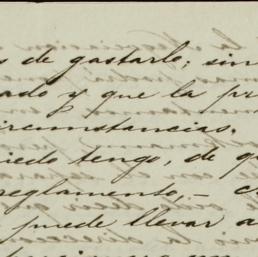 s de gastarlo; sin
ado y que la pr
ircunstancias.
iedo tengo, de q
reglamento, — c
puede llevar a